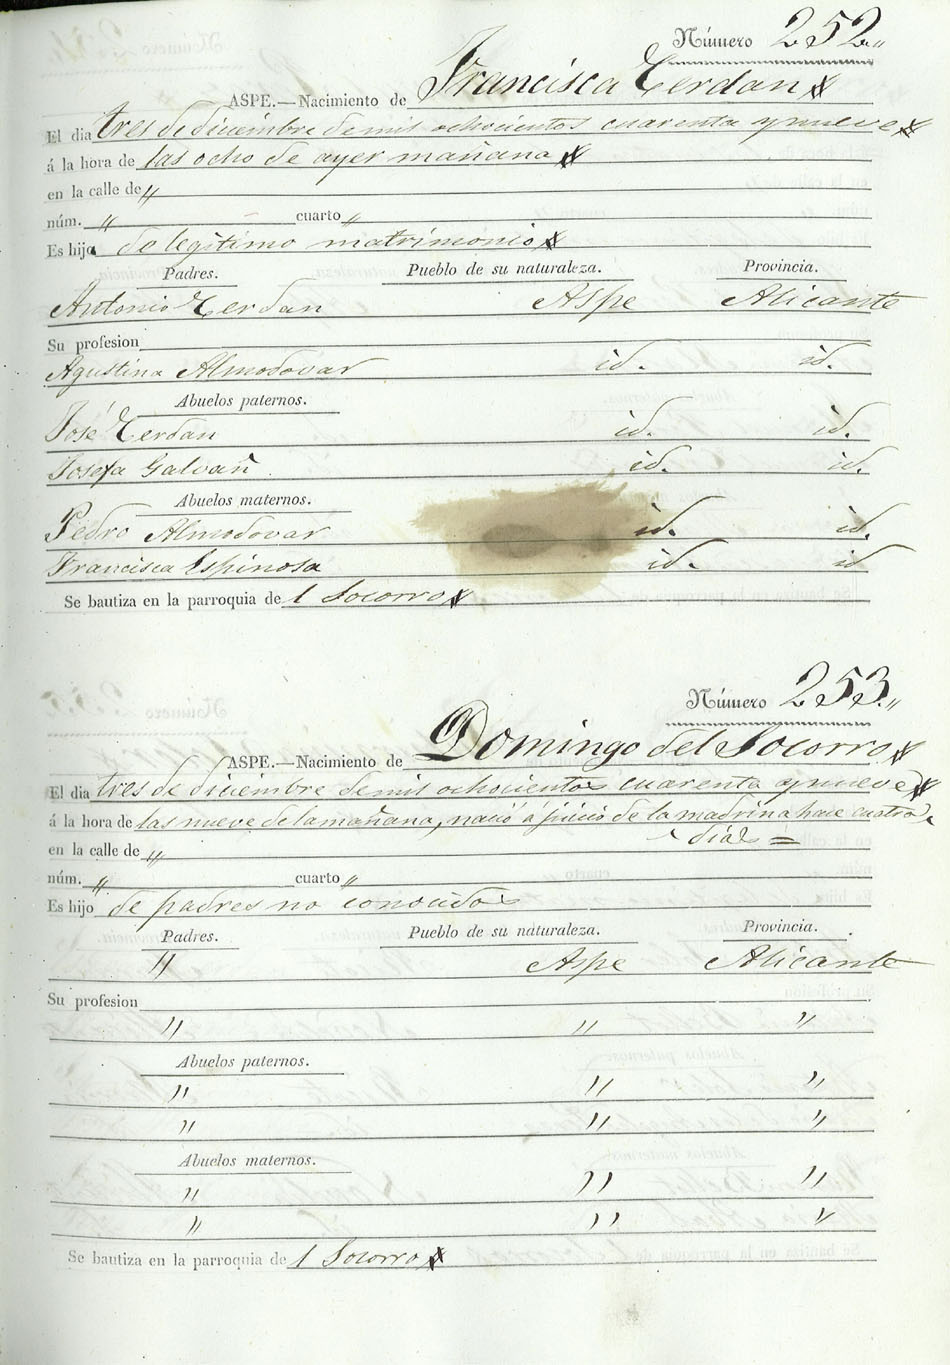 Número 252.,,
ASPE.—Nacimiento de Francisca Cerdan
El dia tres de diciembre de mil ochocientos cuarenta y nueve
á la hora de las ocho de ayer mañana
en la calle de ,,
núm. ,, cuarto ,,
Es hija de legitimo matrimonio
Padres. Pueblo de su naturaleza. Provincia.
Antonio Cerdan Aspe Alicante
Su profesion
Agustina Almodovar id. id.
Abuelos paternos.
José Cerdan id. id.
Josefa Galvañ id. id.
Abuelos maternos.
Pedro Almodovar id. id.
Francisca Espinosa id. id
Se bautiza en la parroquia de l Socorro
Número 253.,,
ASPE.—Nacimiento de Domingo del Socorro
El dia tres de diciembre de mil ochocientos cuarenta y nueve
á la hora de las nueve de la mañana, nació á juicio de la madrina hace cuatro
dias =
en la calle de ,,
núm. ,, cuarto ,,
Es hijo de padres no conocidos
Padres. Pueblo de su naturaleza. Provincia.
,, Aspe Alicante
Su profesion
,, ,, ,,
Abuelos paternos.
,, ,, ,,
,, ,, ,,
Abuelos maternos.
,, ,, ,,
,, ,, ,,
Se bautiza en la parroquia de l Socorro